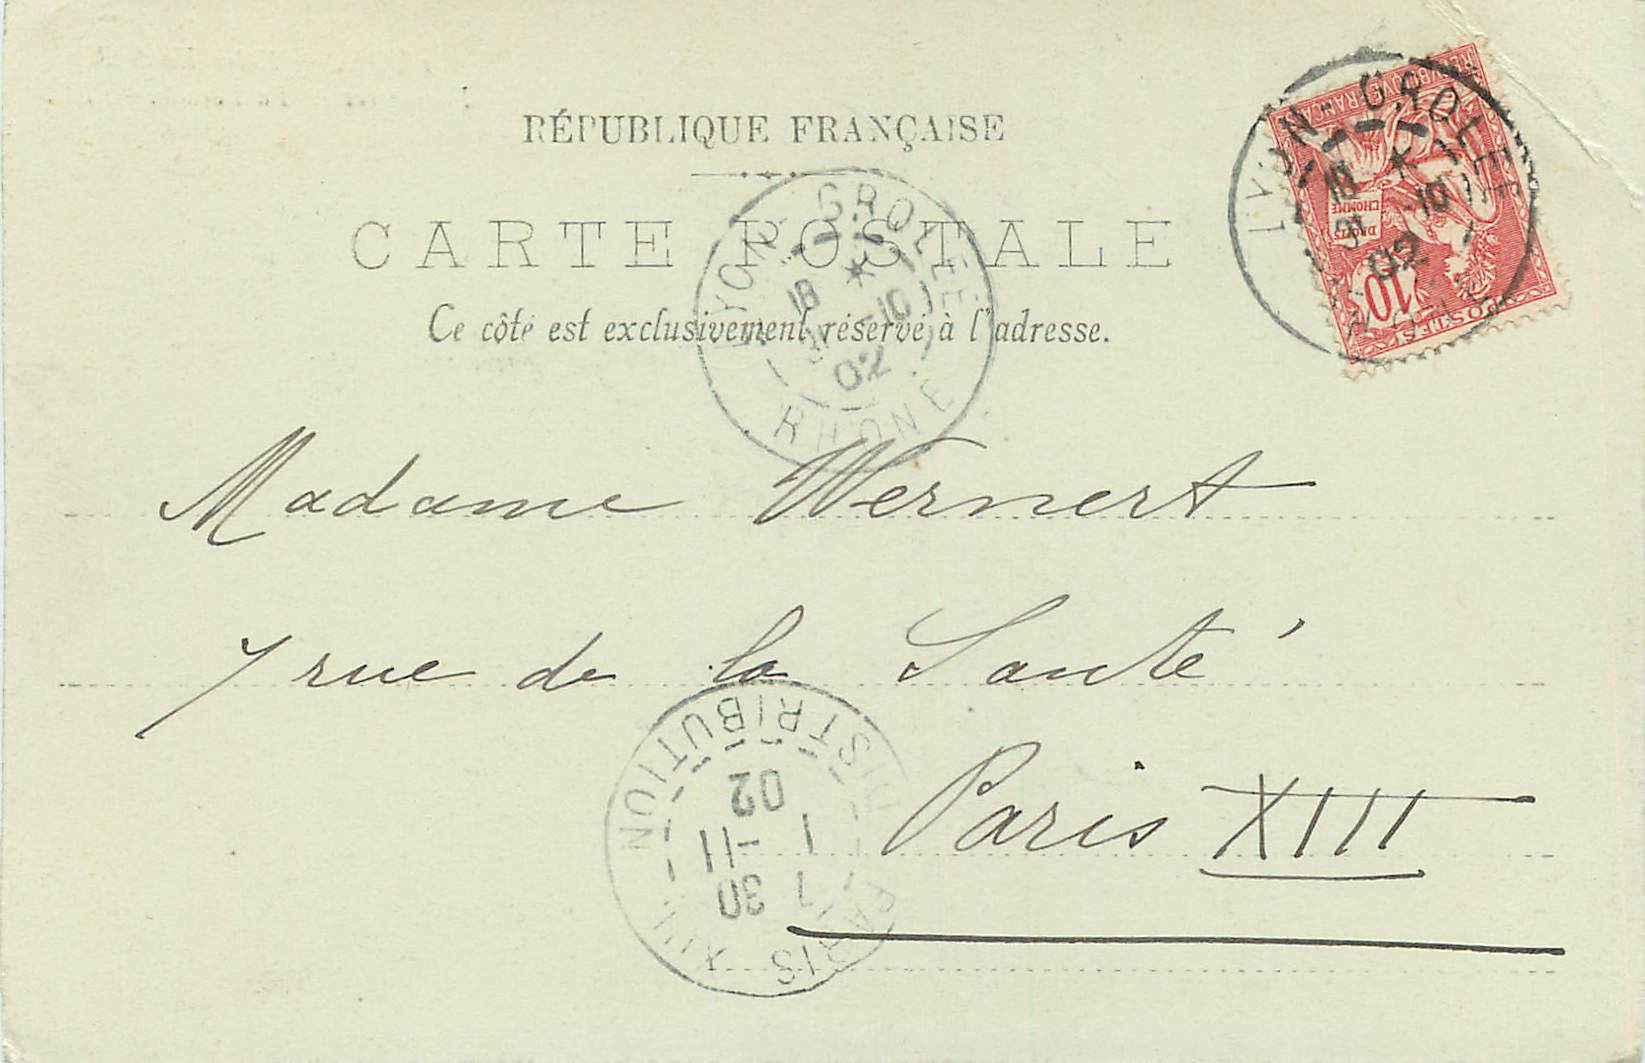 RÉPUBLIQUE FRANÇAISE
CARTE POSTALE
Ce côté est exclusivement réservé à l'adresse.
LYON - GROLÉE
18 *
31 -10
02
RHONE
REPUBLIQUE FRANÇAISE
DROITS
DE
L'HOMME
10
POSTES
LYON - GROLÉE
18 *
31 -10
02
Madame Wernert
7 rue de la Santé
Paris XIII
PARIS XIII
7 30
1 -11
02
DISTRIBUTION